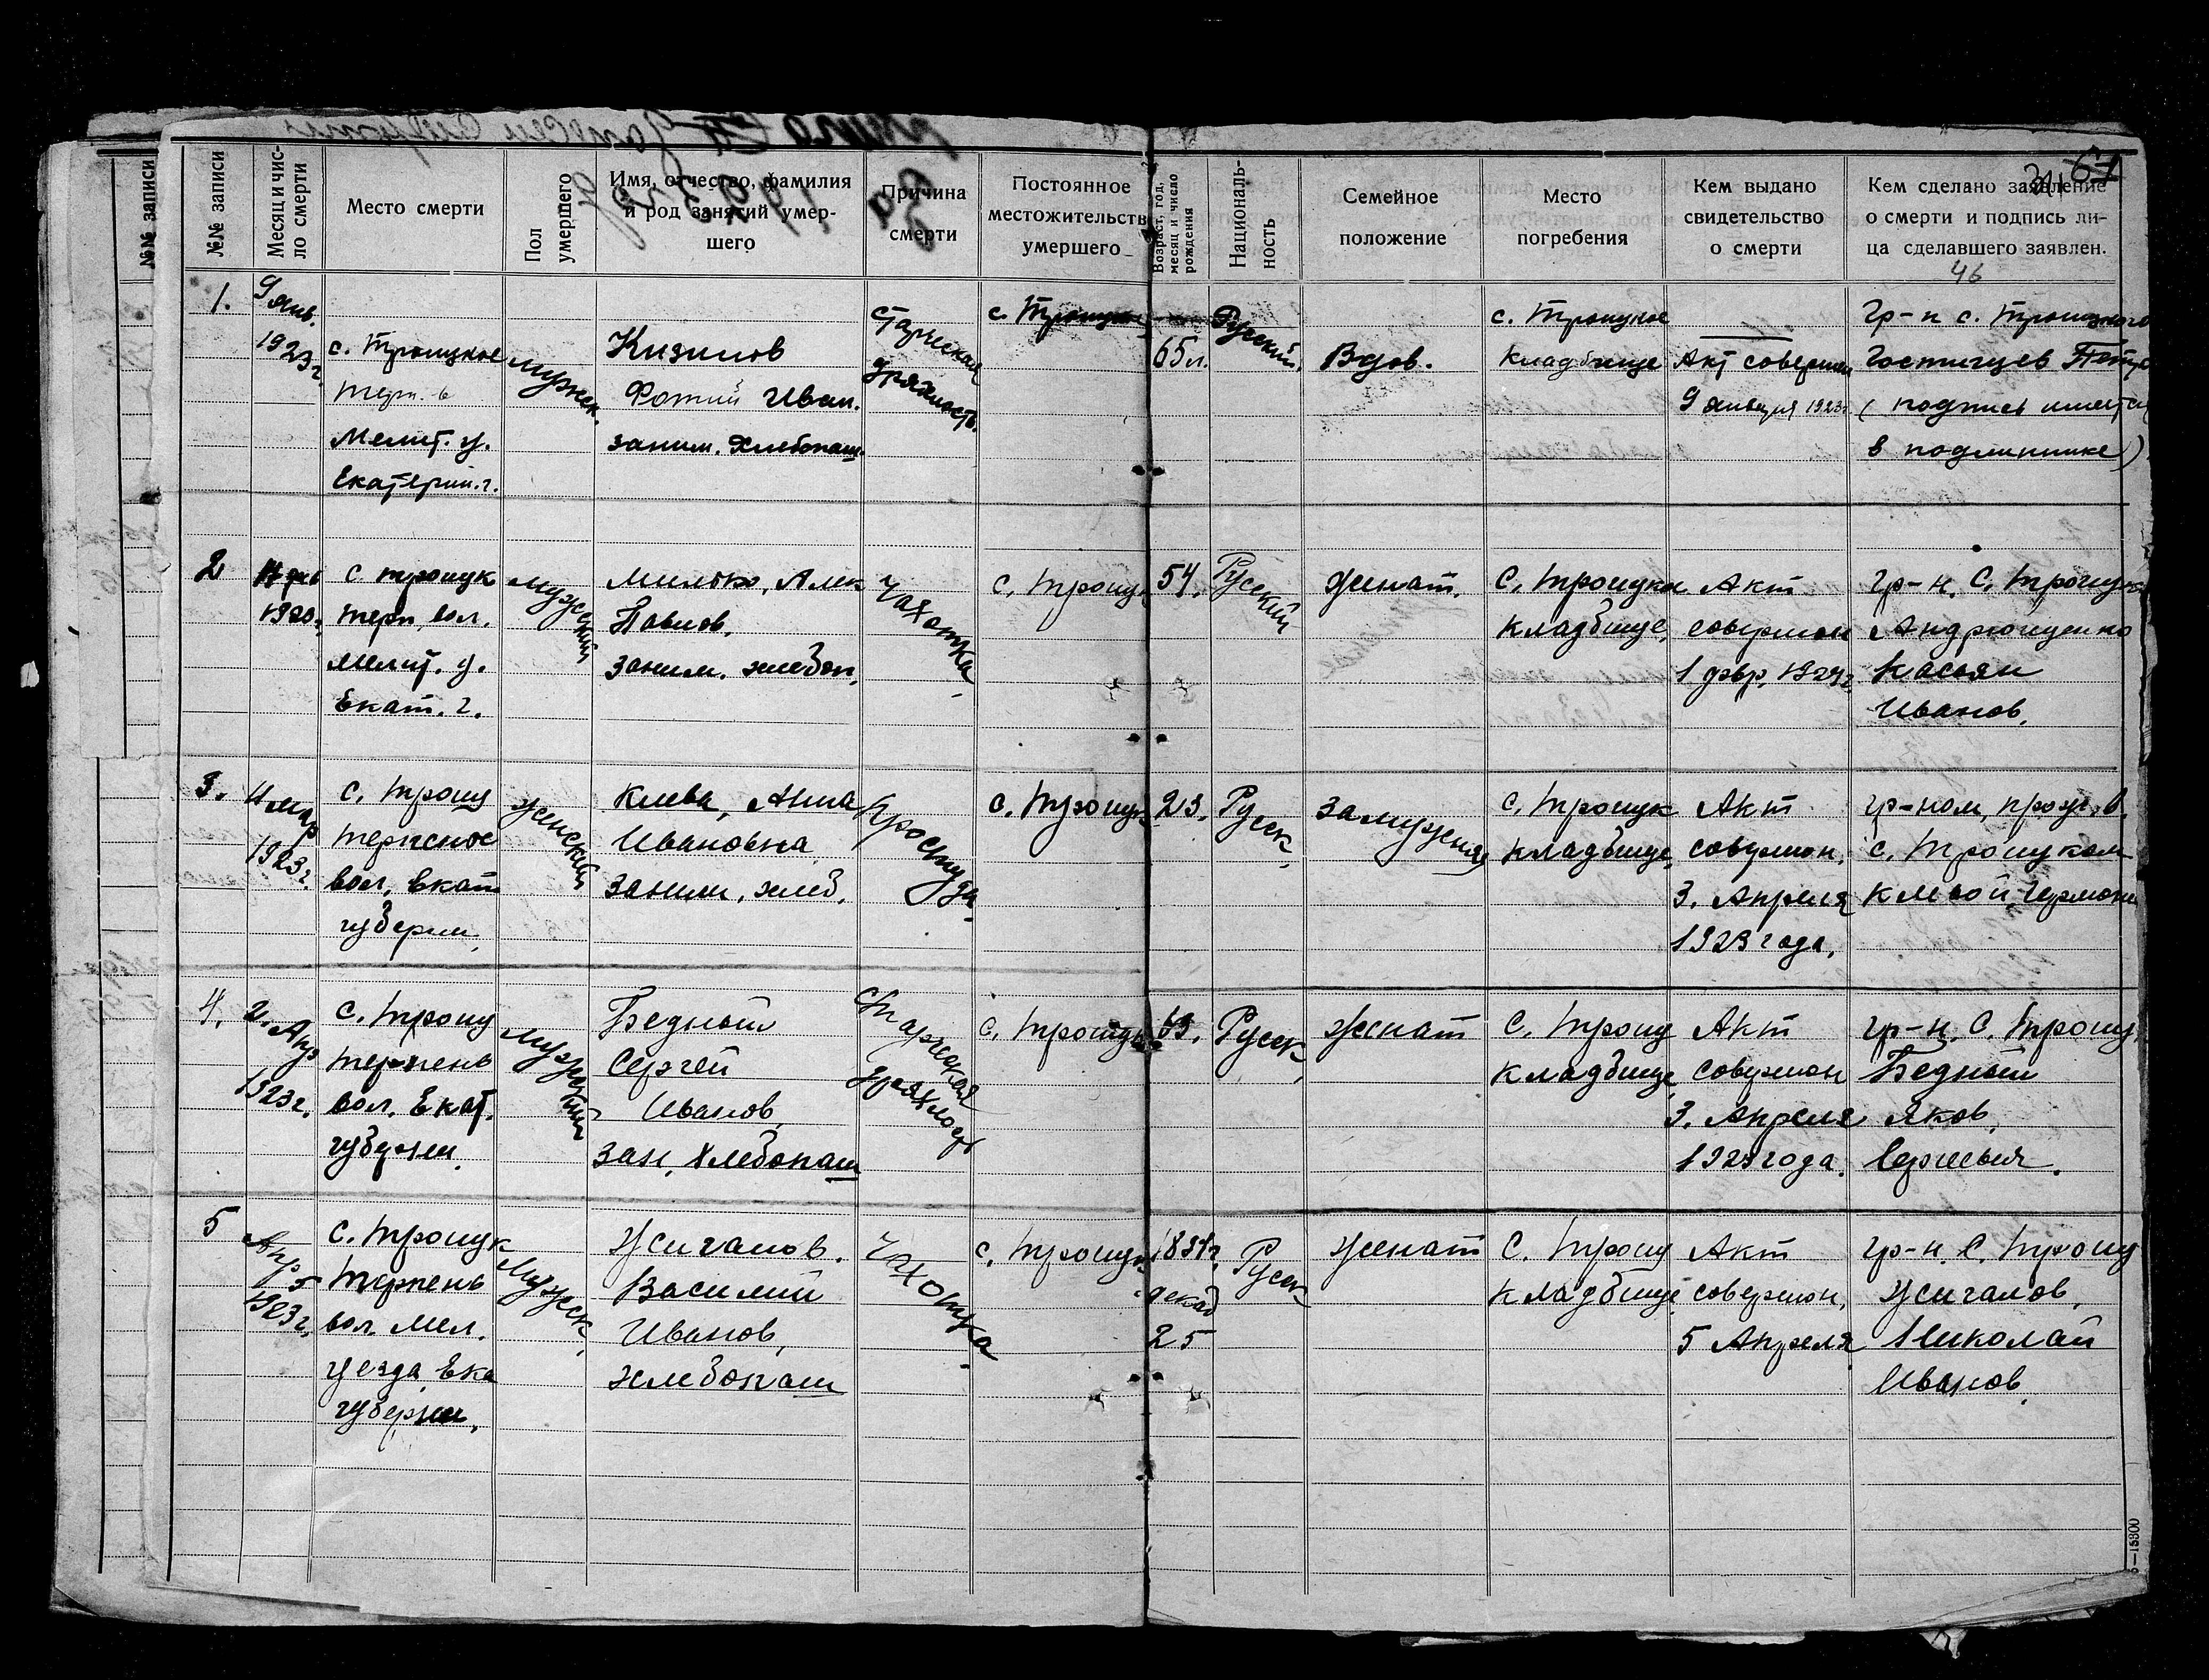 №№ записи
№№ записи
Месяц и чис-
ло смерти
Место смерти
Пол
умершего
Имя, отчество, фамилия
и род занятий умер-
шего
Причина
смерти
Постоянное
местожительств
умершего
Возраст, год,
месяц и число
рождения
Националь-
ность
Семейное
положение
Место
погребения
Кем выдано
свидетельство
о смерти
Кем сделано заявление
о смерти и подпись ли-
ца сделавшего заявлен.
67
46
1.
9 янв.
1923 г.
с. Троицкое
Терп. в
Мелит. у.
Екатерин. г.
мужск.
Кизилов
Фотий Иван.
заним. хлебопаш.
Старческая
дряхлость.
с. Троицкое
65 л.
Русский.
Вдов.
с. Троицкое
кладбище
Акт совершен
9 января 1923 г
гр-н с. Троицкого
Гостищев Петр
(подпись имеется
в подлиннике)
2
1923.
с. Троицк
терп. вол.
мелит. у.
Екат. г.
мужский
Милько, Алек
Павлов.
заним. хлебоп.
Чахотка.
с. Троицк
54.
Русский
женат.
С. Троицком
кладбище,
Акт
совершон
1 февр. 1923 г
гр-н. С. Троицк
Андрющенко
Касьян
Иванов.
3.
11 мар
1923 г.
с. Троиц
терпеное
вол. Екат
губерни.
женский
Клева, Анна
Ивановна
заним. хлеб.
Простуда.
с. Троицк
23.
Русск.
замужняя
с. Троицк
кладбище,
Акт
совершон.
3. Апреля
1923 года.
гр-ном, прож. в.
с. Троицком
4.
2. Апр
1923 г.
с. Троиц
терпень
вол. Екат.
губерни.
мужский
Бедный
Сергей
Иванов,
зан. хлебопаш
Старческая
дряхлост
с. Троицк
63.
Русск.
женат
С. Троиц
кладбище,
Акт
совершон
3. Апреля
1923 года.
гр-н. С. Троицк
Бедный
Яков,
Сергеевич.
5
Апр 5
1923 г.
С. Троицк
терпень
вол. Мел.
уезда Ека
губерни.
Мужск.
Жигалов.
Василий
Иванов,
хлебопаш
Чахотка.
с. Троицк
декаб
25
Русск
женат
С. Троиц
кладбище
Акт
совершон,
5 Апреля
гр-н. С. Троиц
Жигалов,
Николай
Иванов.